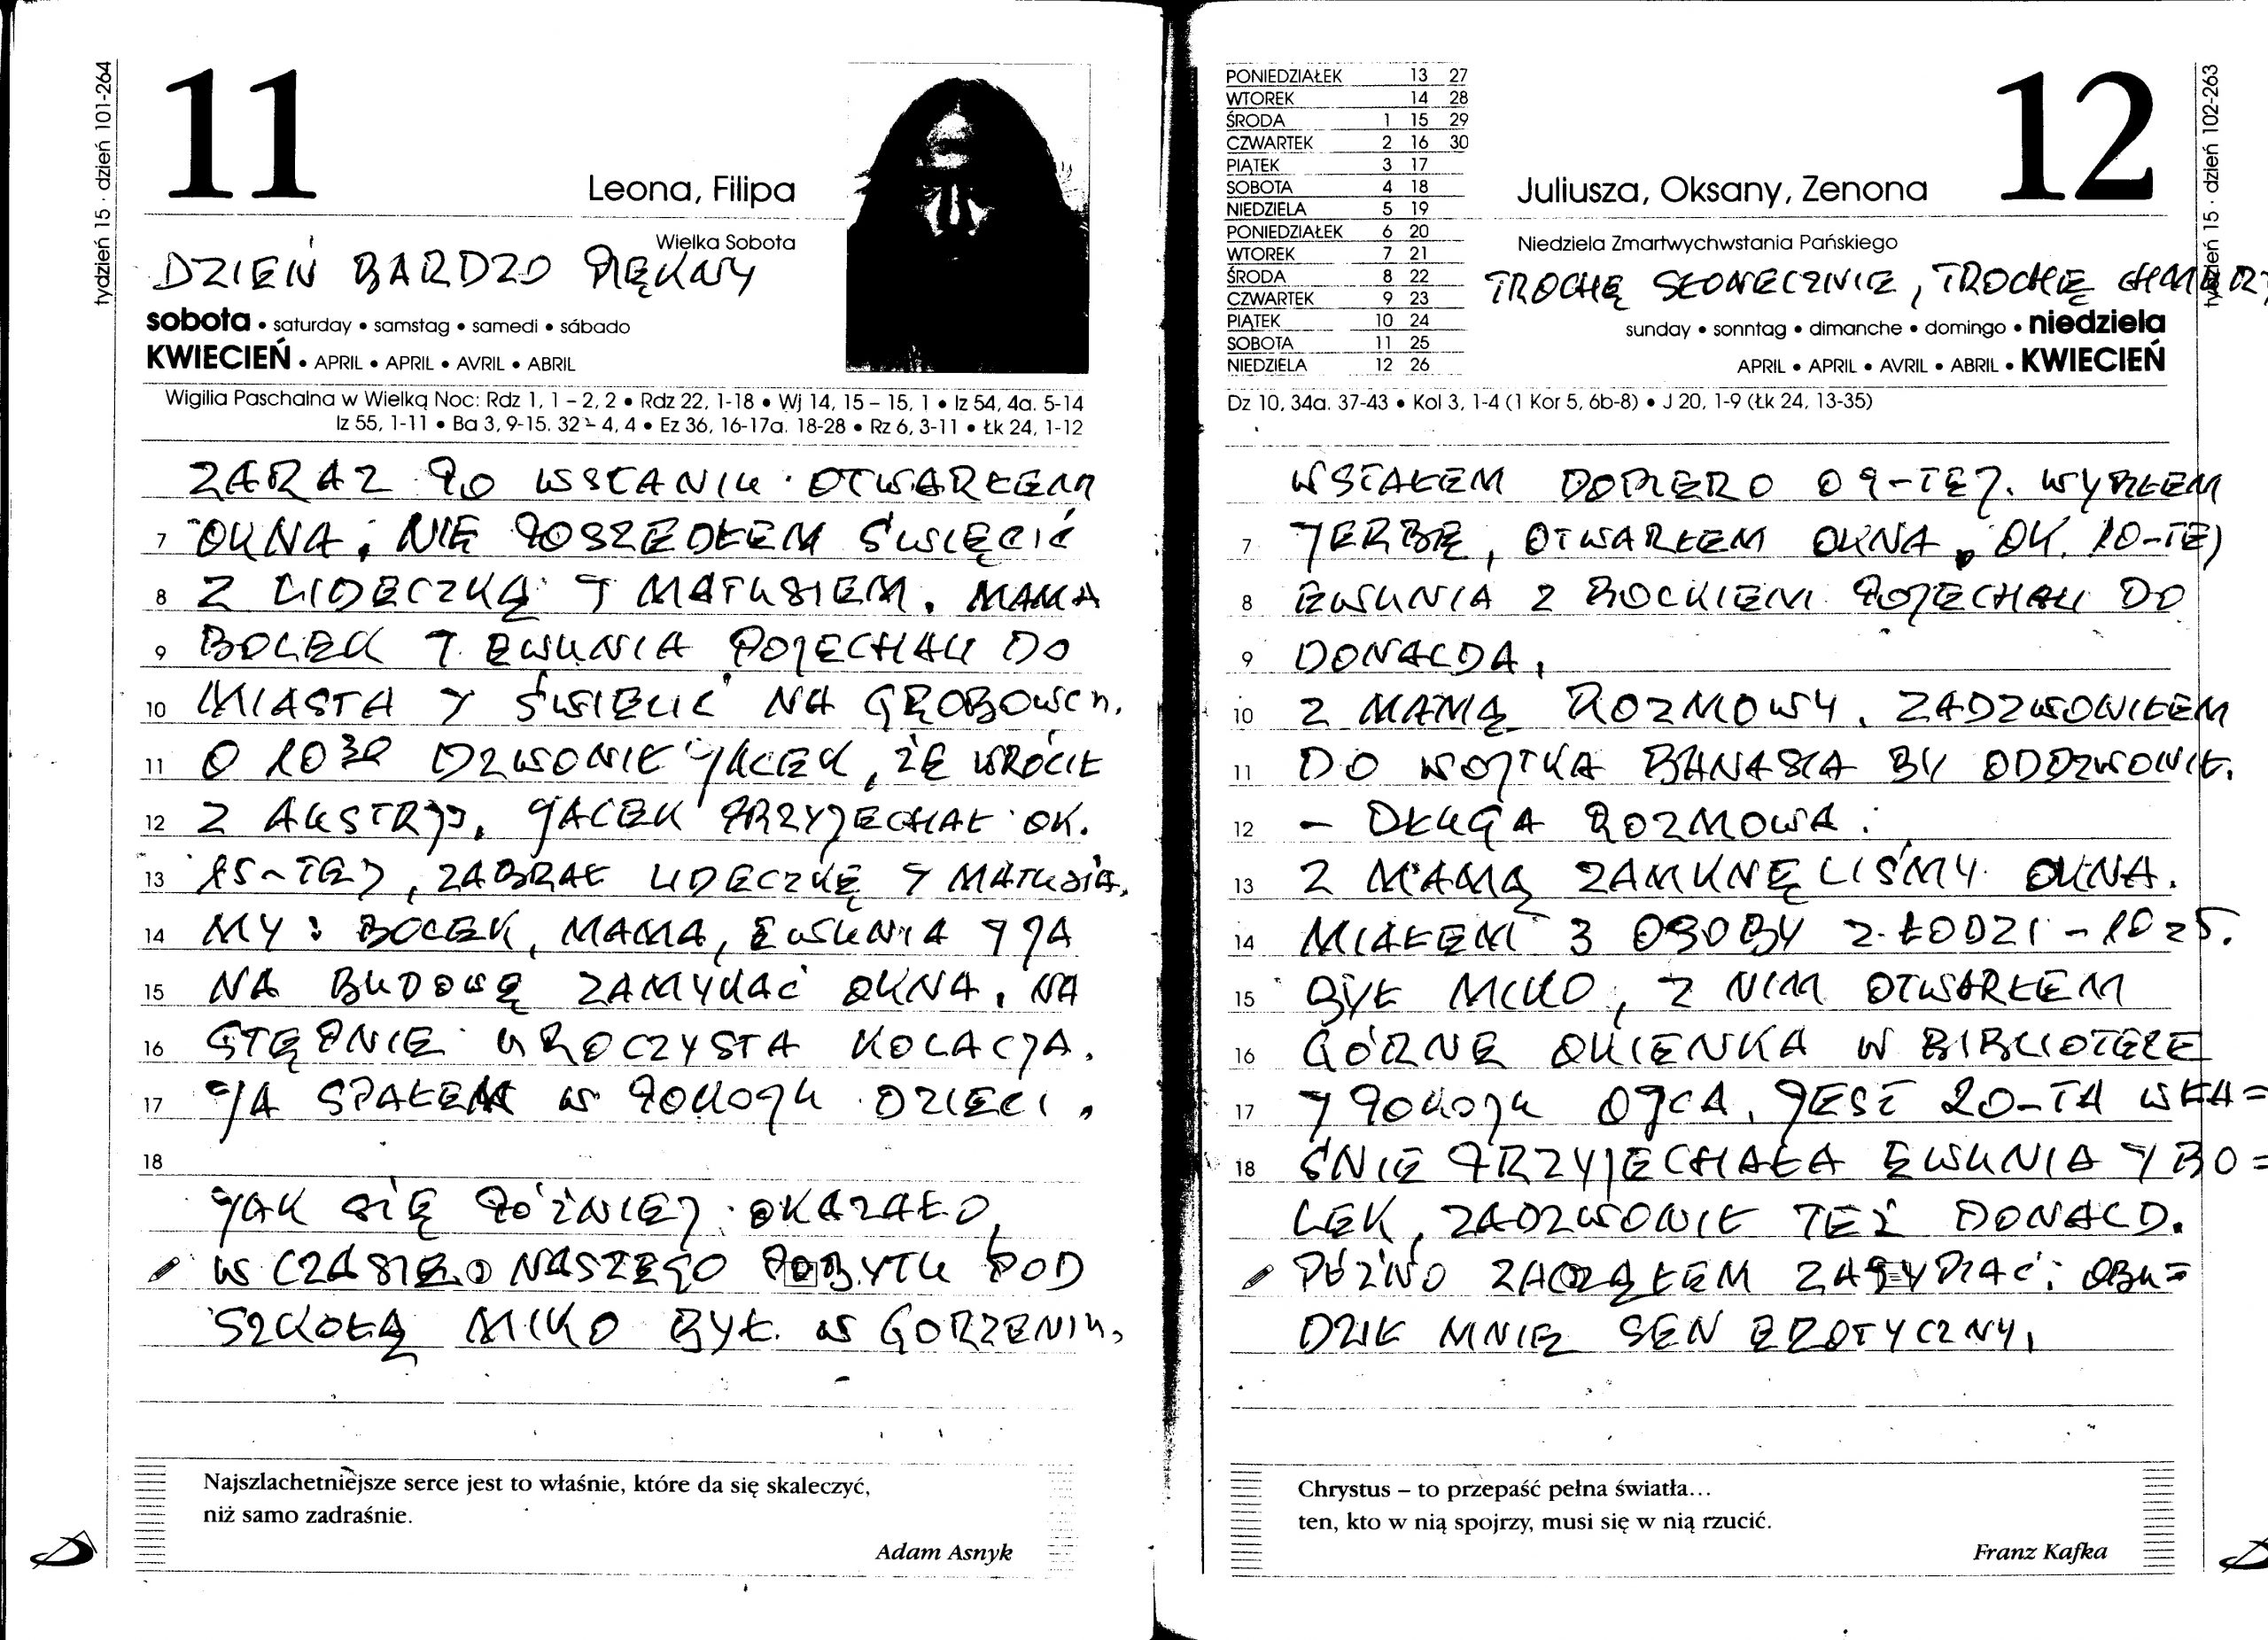 tydzień 15 · dzień 101-264
11
Leona, Filipa
Wielka Sobota
DZIEŃ BARDZO PIĘKNY
sobota • saturday • samstag • samedi • sábado
KWIECIEŃ • APRIL • APRIL • AVRIL • ABRIL
Wigilia Paschalna w Wielką Noc: Rdz 1, 1 – 2, 2 • Rdz 22, 1-18 • Wj 14, 15 – 15, 1 • Iz 54, 4a. 5-14
Iz 55, 1-11 • Ba 3, 9-15. 32 – 4, 4 • Ez 36, 16-17a. 18-28 • Rz 6, 3-11 • Łk 24, 1-12
ZARAZ PO WSTANIU OTWARŁEM
7 OKNA, NIE POSZEDŁEM ŚWIĘCIĆ
8 Z LIDECZKĄ I MATUSIEM. MAMA
9 BOLEK I EWUNIA POJECHALI DO
10 MIASTA I ŚWIECIĆ NA GROBOWCU.
11 O 10 30 DZWONIŁ JACEK, ŻE WRÓCIŁ
12 Z AUSTRJI. JACEK PRZYJECHAŁ OK.
13 15-TEJ, ZABRAŁ LIDECZKĘ I MATUSIA.
14 MY: BOLEK, MAMA, EWUNIA I JA
15 NA BUDOWĘ ZAMYKAĆ OKNA. NA
16 STĘPNIE UROCZYSTA KOLACJA.
17 JA SPAŁEM W POKOJU DZIECI.
18
JAK SIĘ PÓŹNIEJ OKAZAŁO,
W CZASIE NASZEGO POBYTU POD
SZKOŁĄ MIKO BYŁ W GORZENIU.
Najszlachetniejsze serce jest to właśnie, które da się skaleczyć,
niż samo zadraśnie.
Adam Asnyk
PONIEDZIAŁEK 13 27
WTOREK 14 28
ŚRODA 1 15 29
CZWARTEK 2 16 30
PIĄTEK 3 17
SOBOTA 4 18
NIEDZIELA 5 19
PONIEDZIAŁEK 6 20
WTOREK 7 21
ŚRODA 8 22
CZWARTEK 9 23
PIĄTEK 10 24
SOBOTA 11 25
NIEDZIELA 12 26
Juliusza, Oksany, Zenona
12
tydzień 15 · dzień 102-263
Niedziela Zmartwychwstania Pańskiego
TROCHĘ SŁONECZNIE, TROCHĘ CHMURY
sunday • sonntag • dimanche • domingo • niedziela
APRIL • APRIL • AVRIL • ABRIL • KWIECIEŃ
Dz 10, 34a. 37-43 • Kol 3, 1-4 (1 Kor 5, 6b-8) • J 20, 1-9 (Łk 24, 13-35)
WSTAŁEM DOPIERO O 9-TEJ. WYPIŁEM
7 JERBĘ, OTWARŁEM OKNA. OK. 10-TEJ
8 EWUNIA Z BOLKIEM POJECHALI DO
9 DONALDA.
10 Z MAMĄ ROZMOWY. ZADZWONIŁEM
11 DO WOJTKA BANASIA BY ODDZWONIŁ.
12 - DŁUGA ROZMOWA.
13 Z MAMĄ ZAMKNĘLIŚMY OKNA.
14 MIAŁEM 3 OSOBY Z ŁODZI - 10 25.
15 BYŁ MIKO, Z NIM OTWARŁEM
16 GÓRNE OKIENKA W BIBLIOTECE
17 I POKOJU OJCA. JEST 20-TA WŁA=
18 ŚNIE PRZYJECHAŁA EWUNIA I BO=
LEK, ZADZWONIŁ TEŻ DONALD.
PÓŹNO ZACZĄŁEM ZASYPIAĆ; OBU=
DZIŁ MNIE SEN EROTYCZNY.
Chrystus – to przepaść pełna światła...
ten, kto w nią spojrzy, musi się w nią rzucić.
Franz Kafka